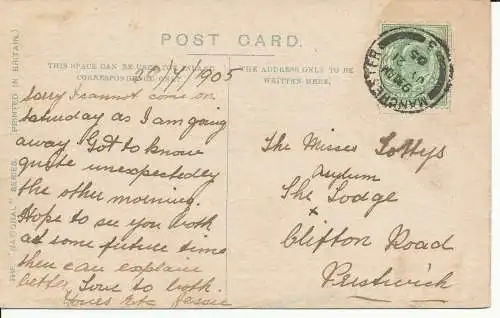 POST CARD.
THIS SPACE CAN BE USED FOR INLAND CORRESPONDENCE ONLY
THE ADDRESS ONLY TO BE WRITTEN HERE.
THE "NATIONAL" SERIES. PRINTED IN BRITAIN.
/1905
Sorry I cannot come on
Saturday as I am going
away Got to know
quite unexpectedly
the other morning.
Hope to see you both
at some future time
then can explain
better, Love to both.
Yours Etc Jessie
The Misses Lottys
Asylum
The Lodge
x
Clifton Road
Prestwich
MANCHESTER